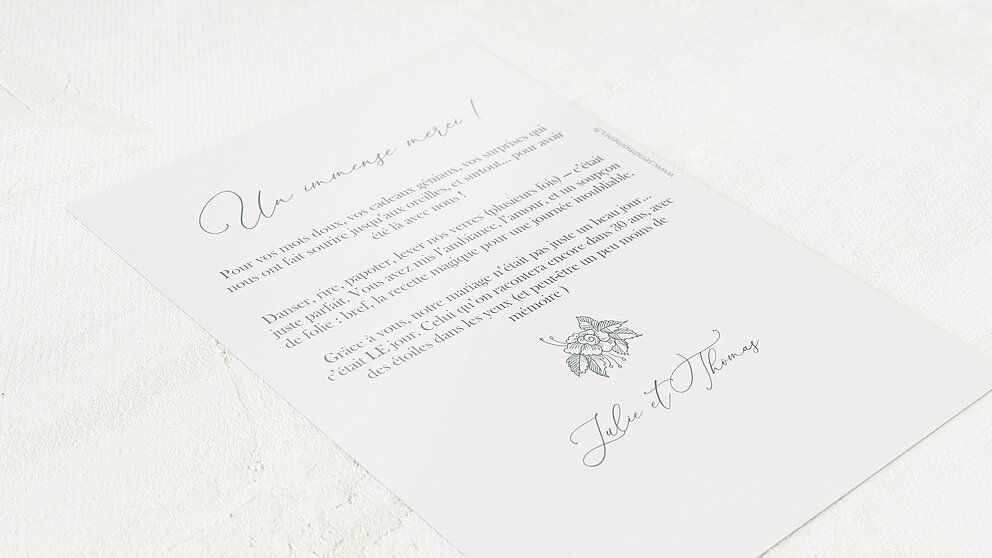 Un immense merci !
Pour vos mots doux, vos cadeaux géniaux, vos surprises qui
nous ont fait sourire jusqu'aux oreilles, et surtout… pour avoir
été là avec nous !
Danser, rire, papoter, lever nos verres (plusieurs fois) – c'était
juste parfait. Vous avez mis l'ambiance, l'amour, et un soupçon
de folie : bref, la recette magique pour une journée inoubliable.
Grâce à vous, notre mariage n'était pas juste un beau jour…
c'était LE jour. Celui qu'on racontera encore dans 30 ans, avec
des étoiles dans les yeux (et peut-être un peu moins de
mémoire )
Julie et Thomas